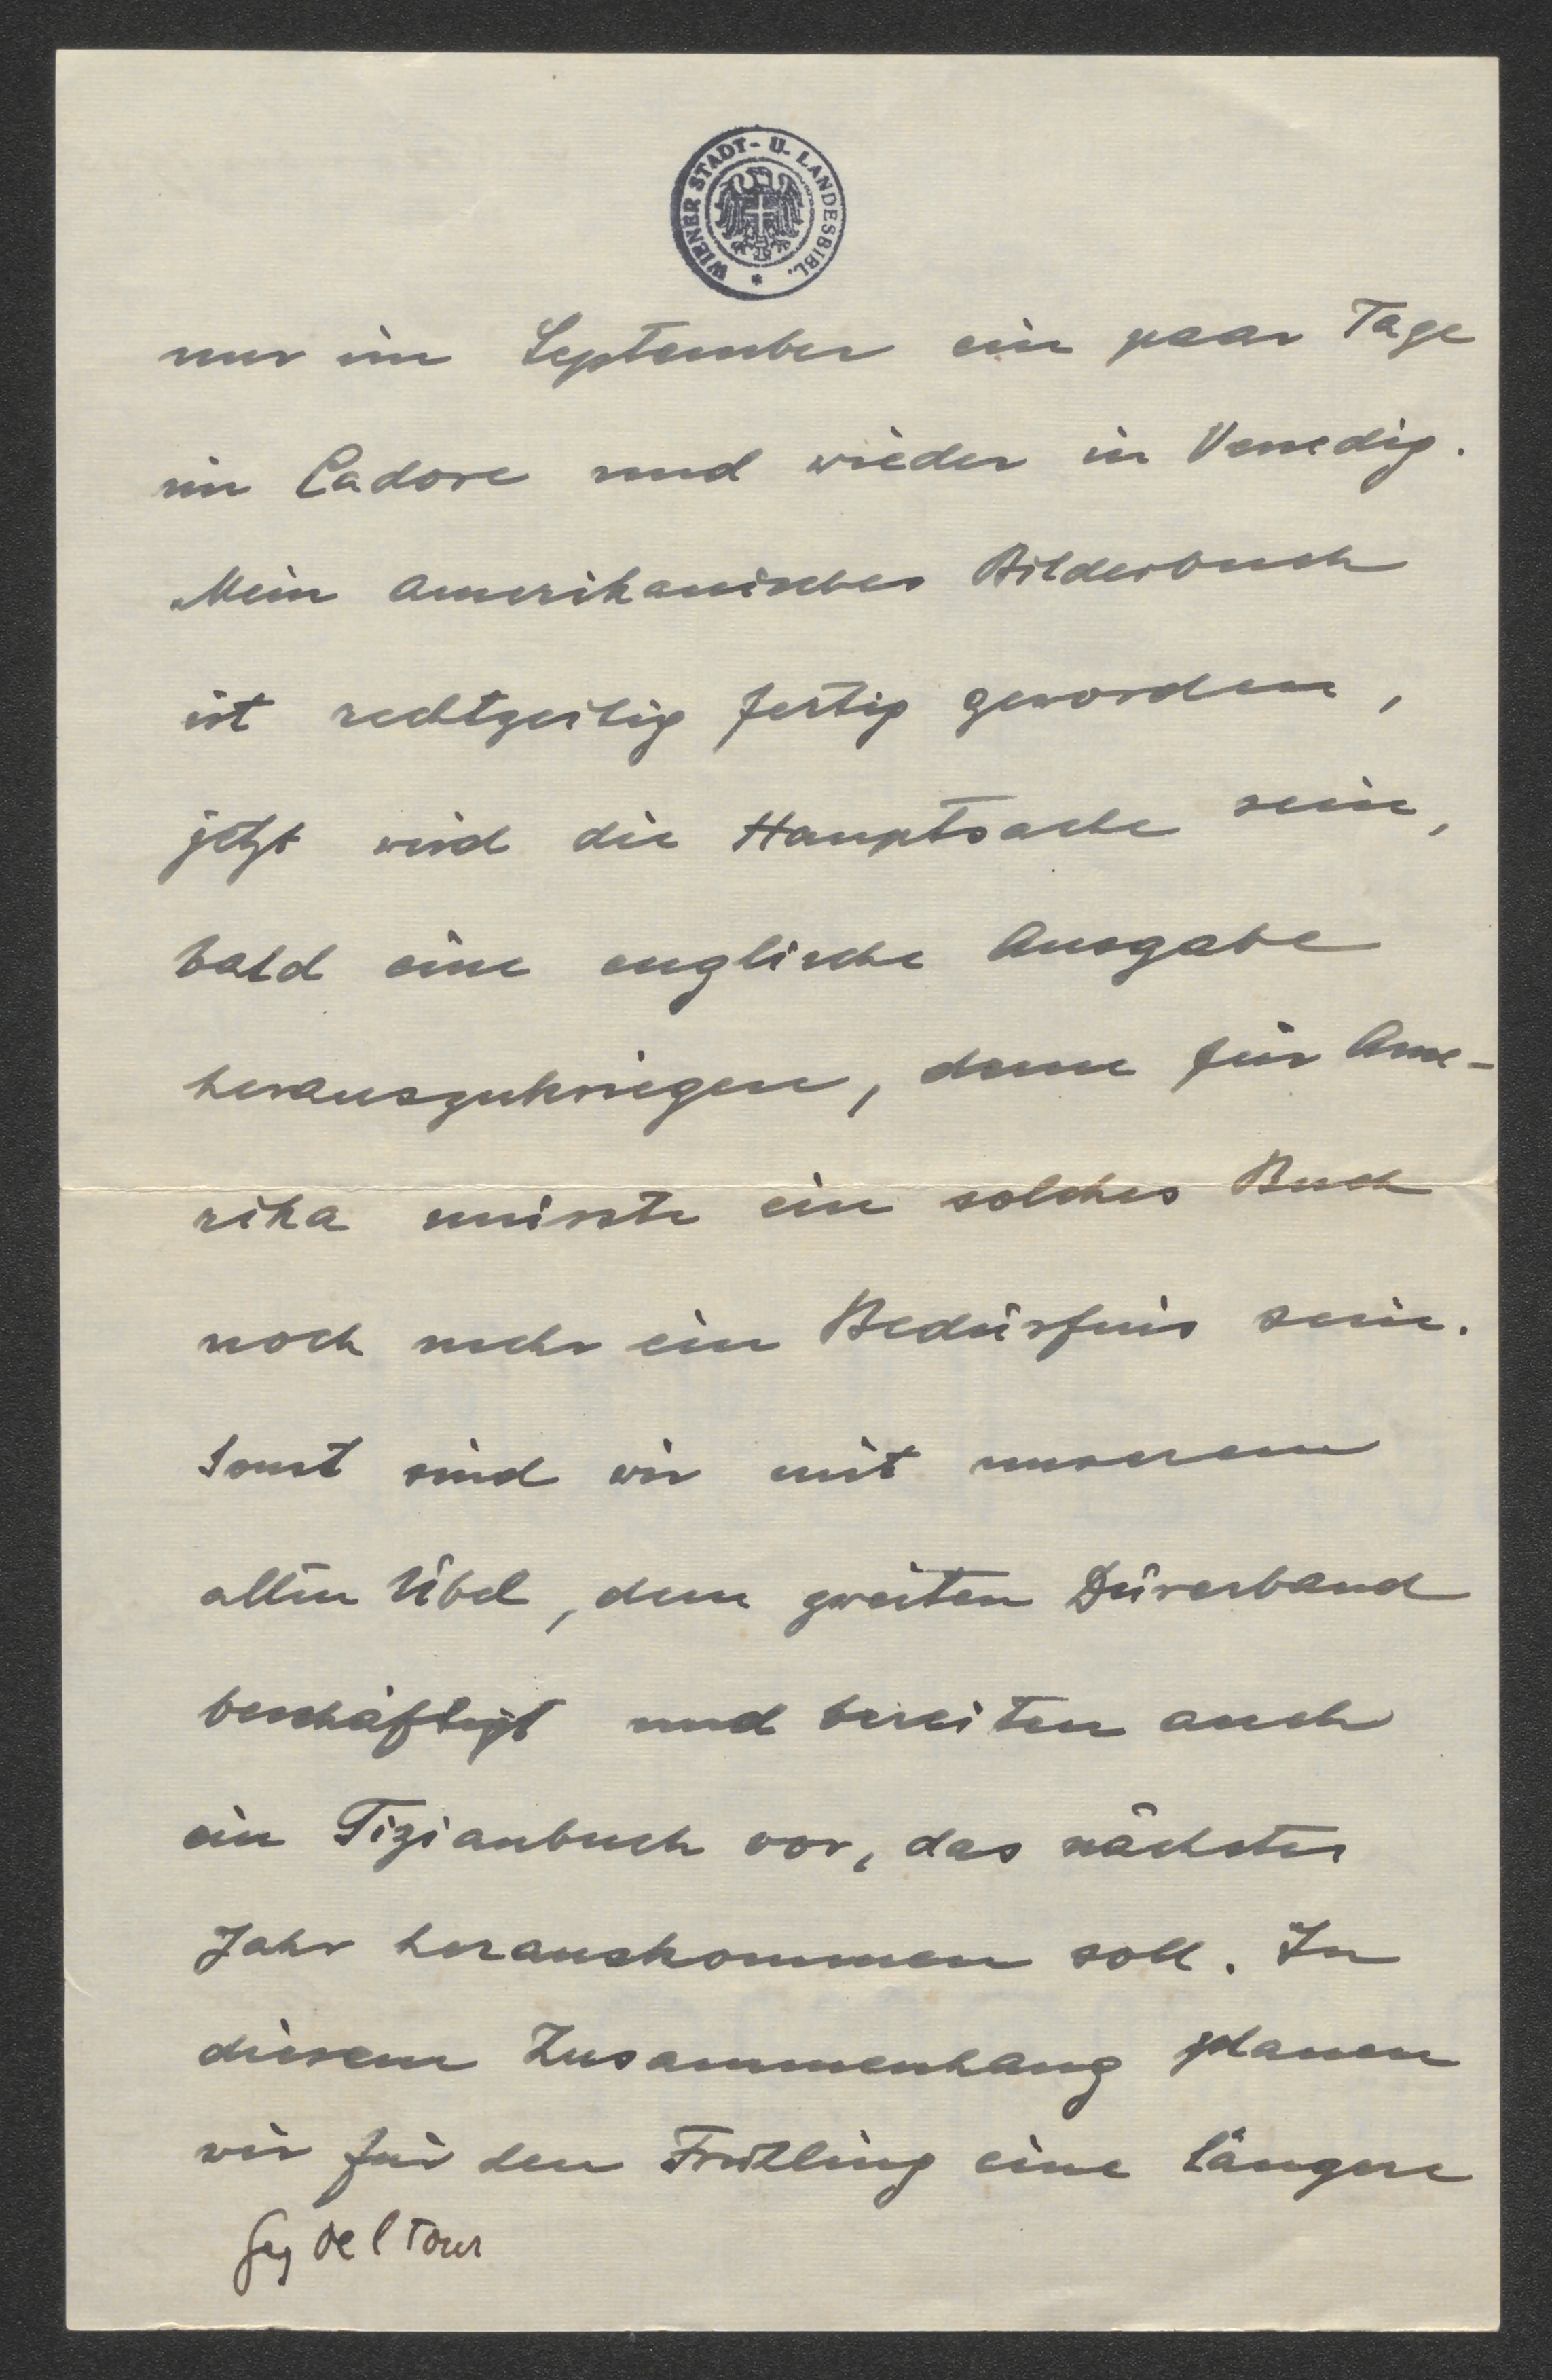 WIENER STADT- U. LANDESBIBL. *
nur im September ein paar Tage
im Cadore und wieder in Venedig.
Mein amerikanisches Bilderbuch
ist rechtzeitig fertig geworden,
jetzt wird die Hauptsache sein,
bald eine englische Ausgabe
herauszukriegen, denn für Ame-
rika müsste ein solches Buch
noch mehr ein Bedürfnis sein.
Sonst sind wir mit unserem
alten Übel, dem zweiten Dürerband
beschäftigt und bereiten auch
ein Tizianbuch vor, das nächstes
Jahr herauskommen soll. In
diesem Zusammenhang planen
wir für den Frühling eine längere